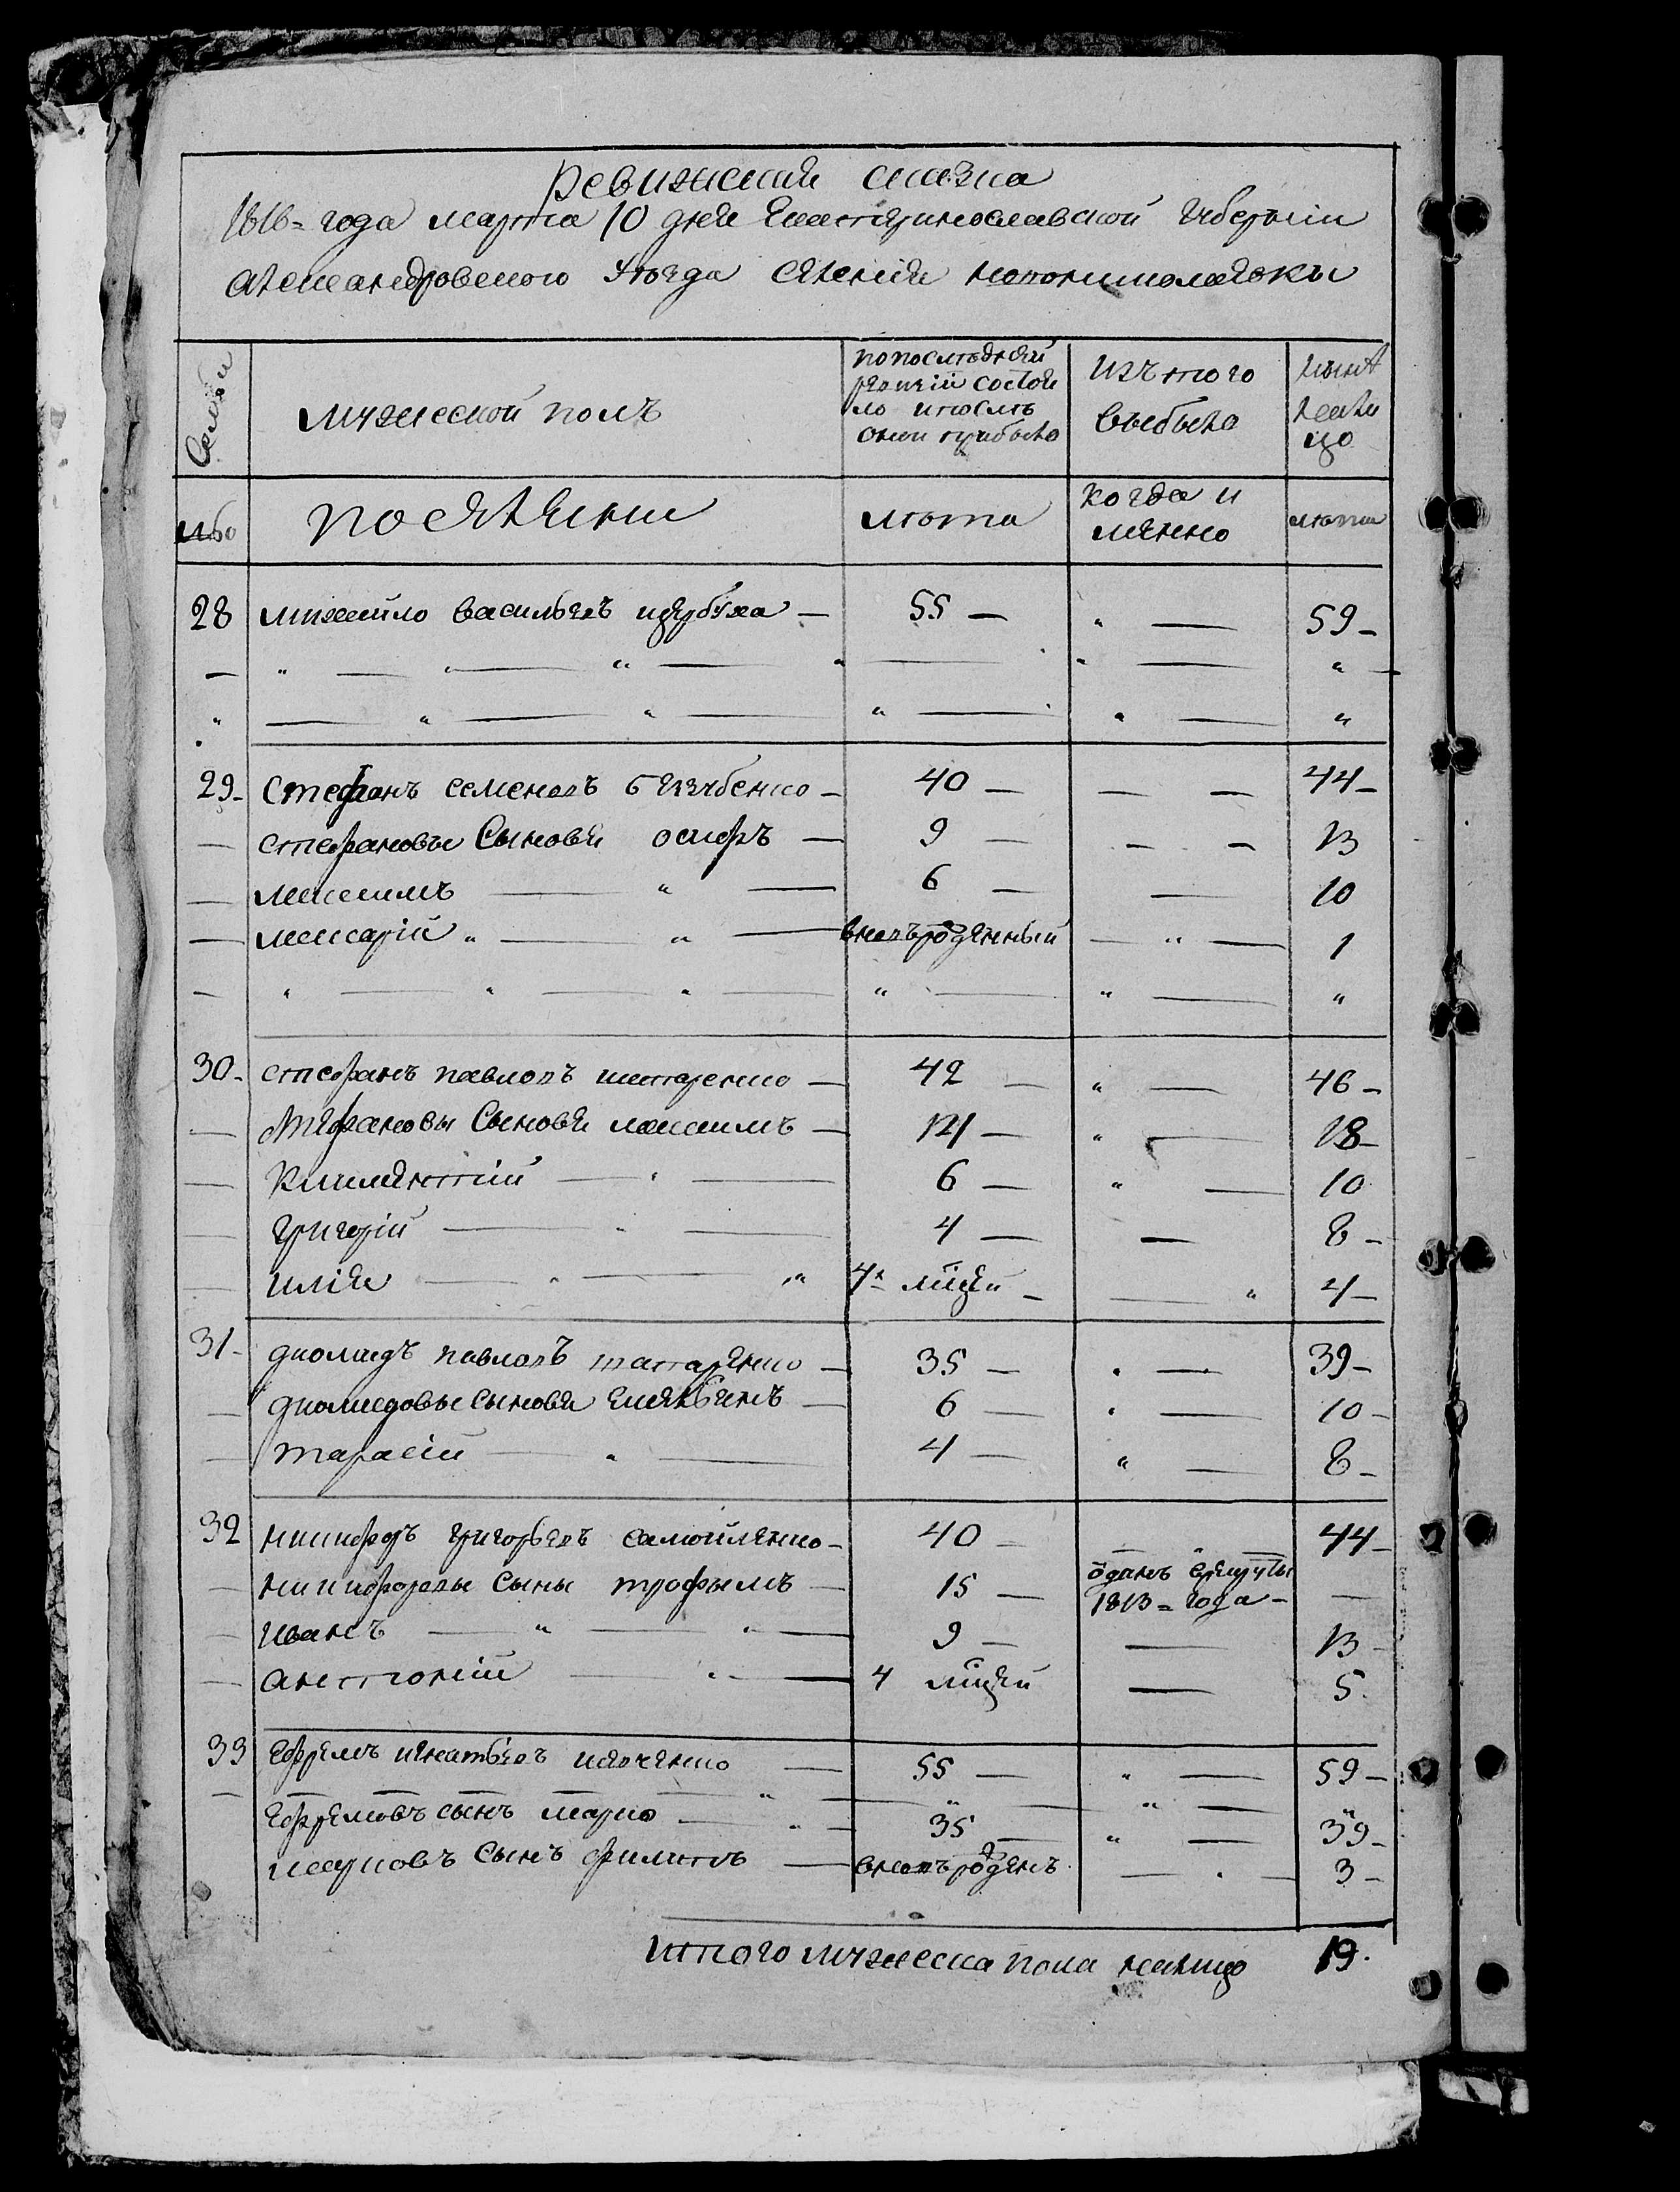 Ревижская сказка
1816 = года марта 10 дня Екатеринославской губернiи
Александровского уѣзда селенiя Новониколаевки
Семьи
мужеской полъ
по последней ревизiи состояло и послѣ оной прибыло
изъ того выбыло
нынѣ налицо
поселяни
лѣта
когда имянно
лѣта
28 михайло васильевъ щербуха — 55 — „ — 59 —
29 — стефанъ семеновъ — 40 — — — 44 —
стефановы сыновя осифъ — 9 — — — 13
максимъ — „ — 6 — — 10
макарiй „ — „ — вновърожденный — „ — 1
30 — стефанъ павловъ — 42 — „ — 46 —
стефановы сыновя максимъ — 14 — „ — 18 —
климентiй — „ — 6 — „ — 10
григорiй — „ — 4 — — 8 —
илiя — „ — „ 4х мцей — — „ 4 —
31 — диомидъ павловъ татаренко — 35 — „ — 39 —
диомидовы сыновя — 6 — „ — 10 —
тарасiй — „ — 4 — „ — 8 —
32 никифоръ григорьевъ самойленко — 40 — 44 —
никифоровы сыны трофымъ — 15 — оданъ врекруты 1813 = года — —
иванъ — „ — „ — 9 — — 13 —
антонiй — „ — 4 мцей — 5
33 ефремъ игнатьевъ — 55 — „ — 59 —
ефремовъ сынъ марко — „ — 35 — „ — 39 —
марковъ сынъ филипъ — вновърожденъ — „ — 3 —
итого мужеска пола налицо 19.